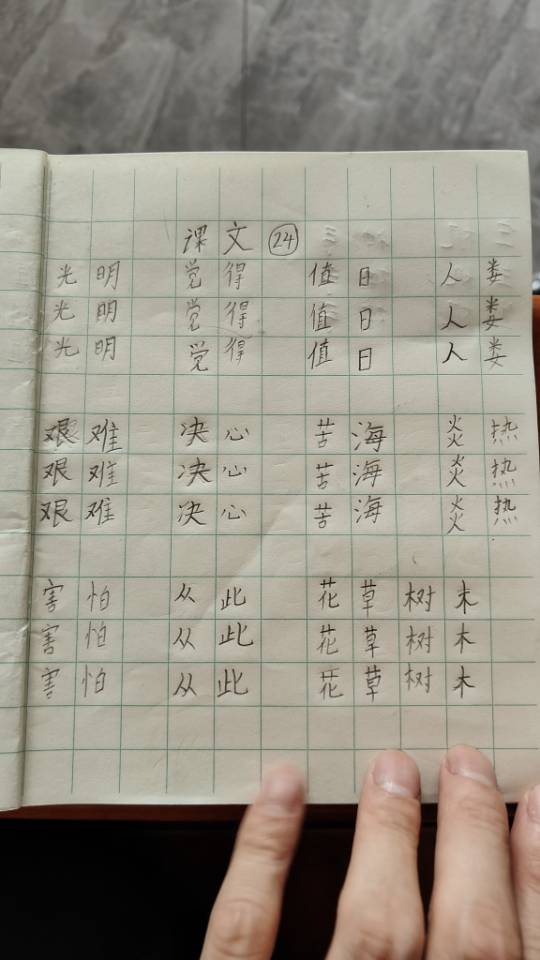 课文 24
光明 觉得 值日 人类
光明 觉得 值日 人类
光明 觉得 值日 人类
艰难 决心 苦海 炎热
艰难 决心 苦海 炎热
艰难 决心 苦海 炎热
害怕 从此 花草树木
害怕 从此 花草树木
害怕 从此 花草树木